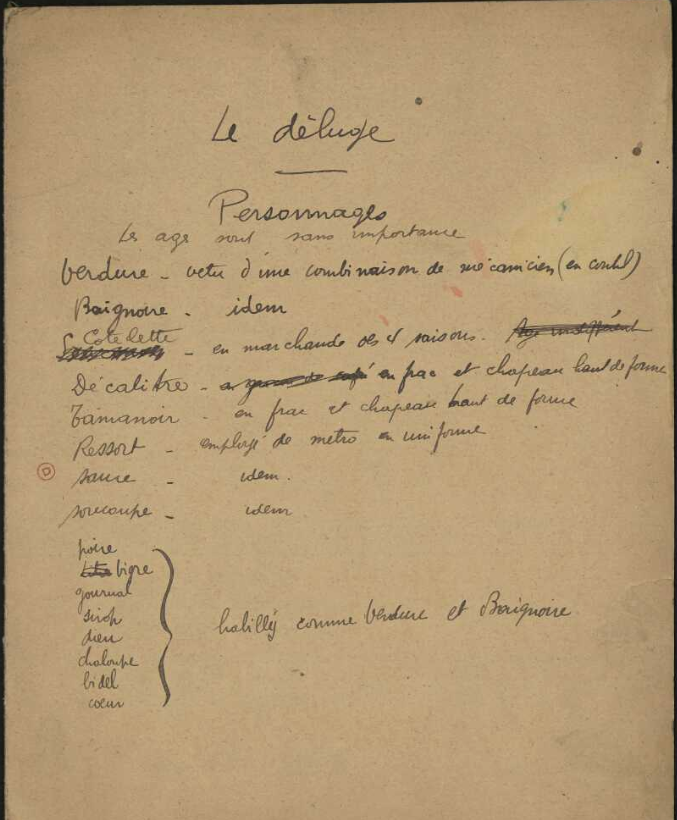 Le déluge
Personnages
les age sont sans importance
Verdure - vetu d'une combinaison de mécanicien (en coutil)
Baignoire - idem
Cotelette - en marchande des 4 saisons. Age indifférent
Décalitre - en frac et chapeau haut de forme
Tamanoir - en frac et chapeau haut de forme
Ressort - employé de metro en uniforme
sauce - idem.
soucoupe - idem
poire
bigre
journal
sirop
dieu
chaloupe
bidel
coeur
habillés comme Verdure et Baignoire